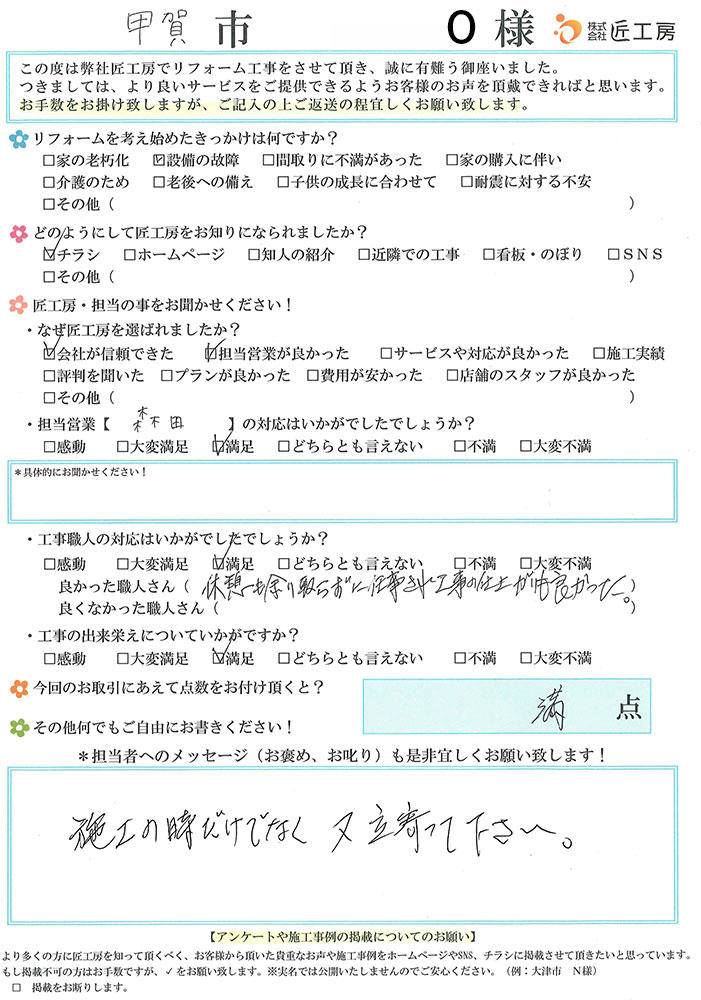 甲賀 市 O 様 株式会社 匠工房
この度は弊社匠工房でリフォーム工事をさせて頂き、誠に有難う御座いました。
つきましては、より良いサービスをご提供できるようお客様のお声を頂戴できればと思います。
お手数をお掛け致しますが、ご記入の上ご返送の程宜しくお願い致します。
リフォームを考え始めたきっかけは何ですか？
□家の老朽化 ☑設備の故障 □間取りに不満があった □家の購入に伴い
□介護のため □老後への備え □子供の成長に合わせて □耐震に対する不安
□その他（ ）
どのようにして匠工房をお知りになられましたか？
☑チラシ □ホームページ □知人の紹介 □近隣での工事 □看板・のぼり □ＳＮＳ
□その他（ ）
匠工房・担当の事をお聞かせください！
・なぜ匠工房を選ばれましたか？
☑会社が信頼できた ☑担当営業が良かった □サービスや対応が良かった □施工実績
□評判を聞いた □プランが良かった □費用が安かった □店舗のスタッフが良かった
□その他（ ）
・担当営業【 森田 】の対応はいかがでしたでしょうか？
□感動 □大変満足 ☑満足 □どちらとも言えない □不満 □大変不満
＊具体的にお聞かせください！
・工事職人の対応はいかがでしたでしょうか？
□感動 □大変満足 ☑満足 □どちらとも言えない □不満 □大変不満
良かった職人さん（ 休憩も余り取らずに仕事され工事の仕上がりも良かった。）
良くなかった職人さん（ ）
・工事の出来栄えについていかがですか？
□感動 □大変満足 ☑満足 □どちらとも言えない □不満 □大変不満
今回のお取引にあえて点数をお付け頂くと？ 満 点
その他何でもご自由にお書きください！
＊担当者へのメッセージ（お褒め、お叱り）も是非宜しくお願い致します！
施工の時だけでなく 又 立寄って下さい。
【アンケートや施工事例の掲載についてのお願い】
より多くの方に匠工房を知って頂くべく、お客様から頂いた貴重なお声や施工事例をホームページやSNS、チラシに掲載させて頂きたいと思っています。
もし掲載不可の方はお手数ですが、✓をお願い致します。※実名では公開いたしませんのでご安心ください。（例：大津市 N様）
□ 掲載をお断りします。